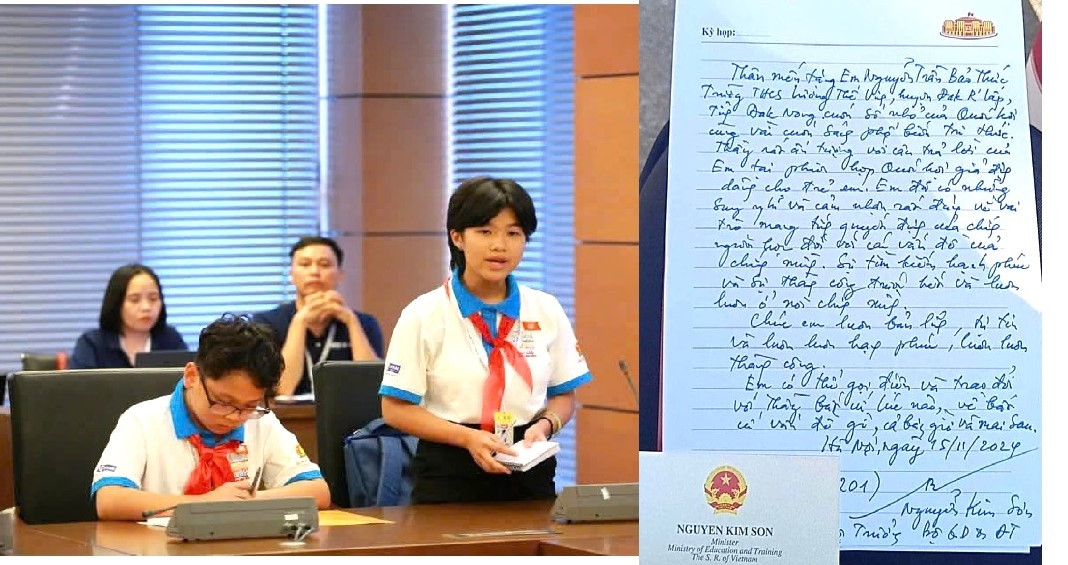 Kỳ họp:
Thân mến tặng Em Nguyễn Trần Bảo Thức
Trường THCS Lương Thế Vinh, huyện Đak R'lấp,
Tỉnh Đak Nông cuốn sổ nhỏ của Quốc hội
cùng vài cuốn sách phổ biến tri thức.
Thầy rất ấn tượng với câu trả lời của
Em tại phiên họp Quốc hội giả định
dành cho trẻ em. Em đã có những
suy nghĩ và cảm nhận rất đúng về vai
trò mang tính quyết định của chúng
người học đối với các vấn đề của
chúng mình. Sự tìm kiếm hạnh phúc
và sự thành công trước hết và luôn
luôn ở nơi chúng mình.
Chúc em luôn bản lĩnh, tự tin
và luôn luôn hạnh phúc, luôn luôn
thành công.
Em có thể gọi điện và trao đổi
với Thầy bất cứ lúc nào, về bất
cứ vấn đề gì, cả bây giờ và mai sau.
Hà Nội, ngày 15/11/2024
201)
Nguyễn Kim Sơn
Trưởng Bộ GD & ĐT
NGUYEN KIM SON
Minister
Ministry of Education and Training
The S. R. of Vietnam